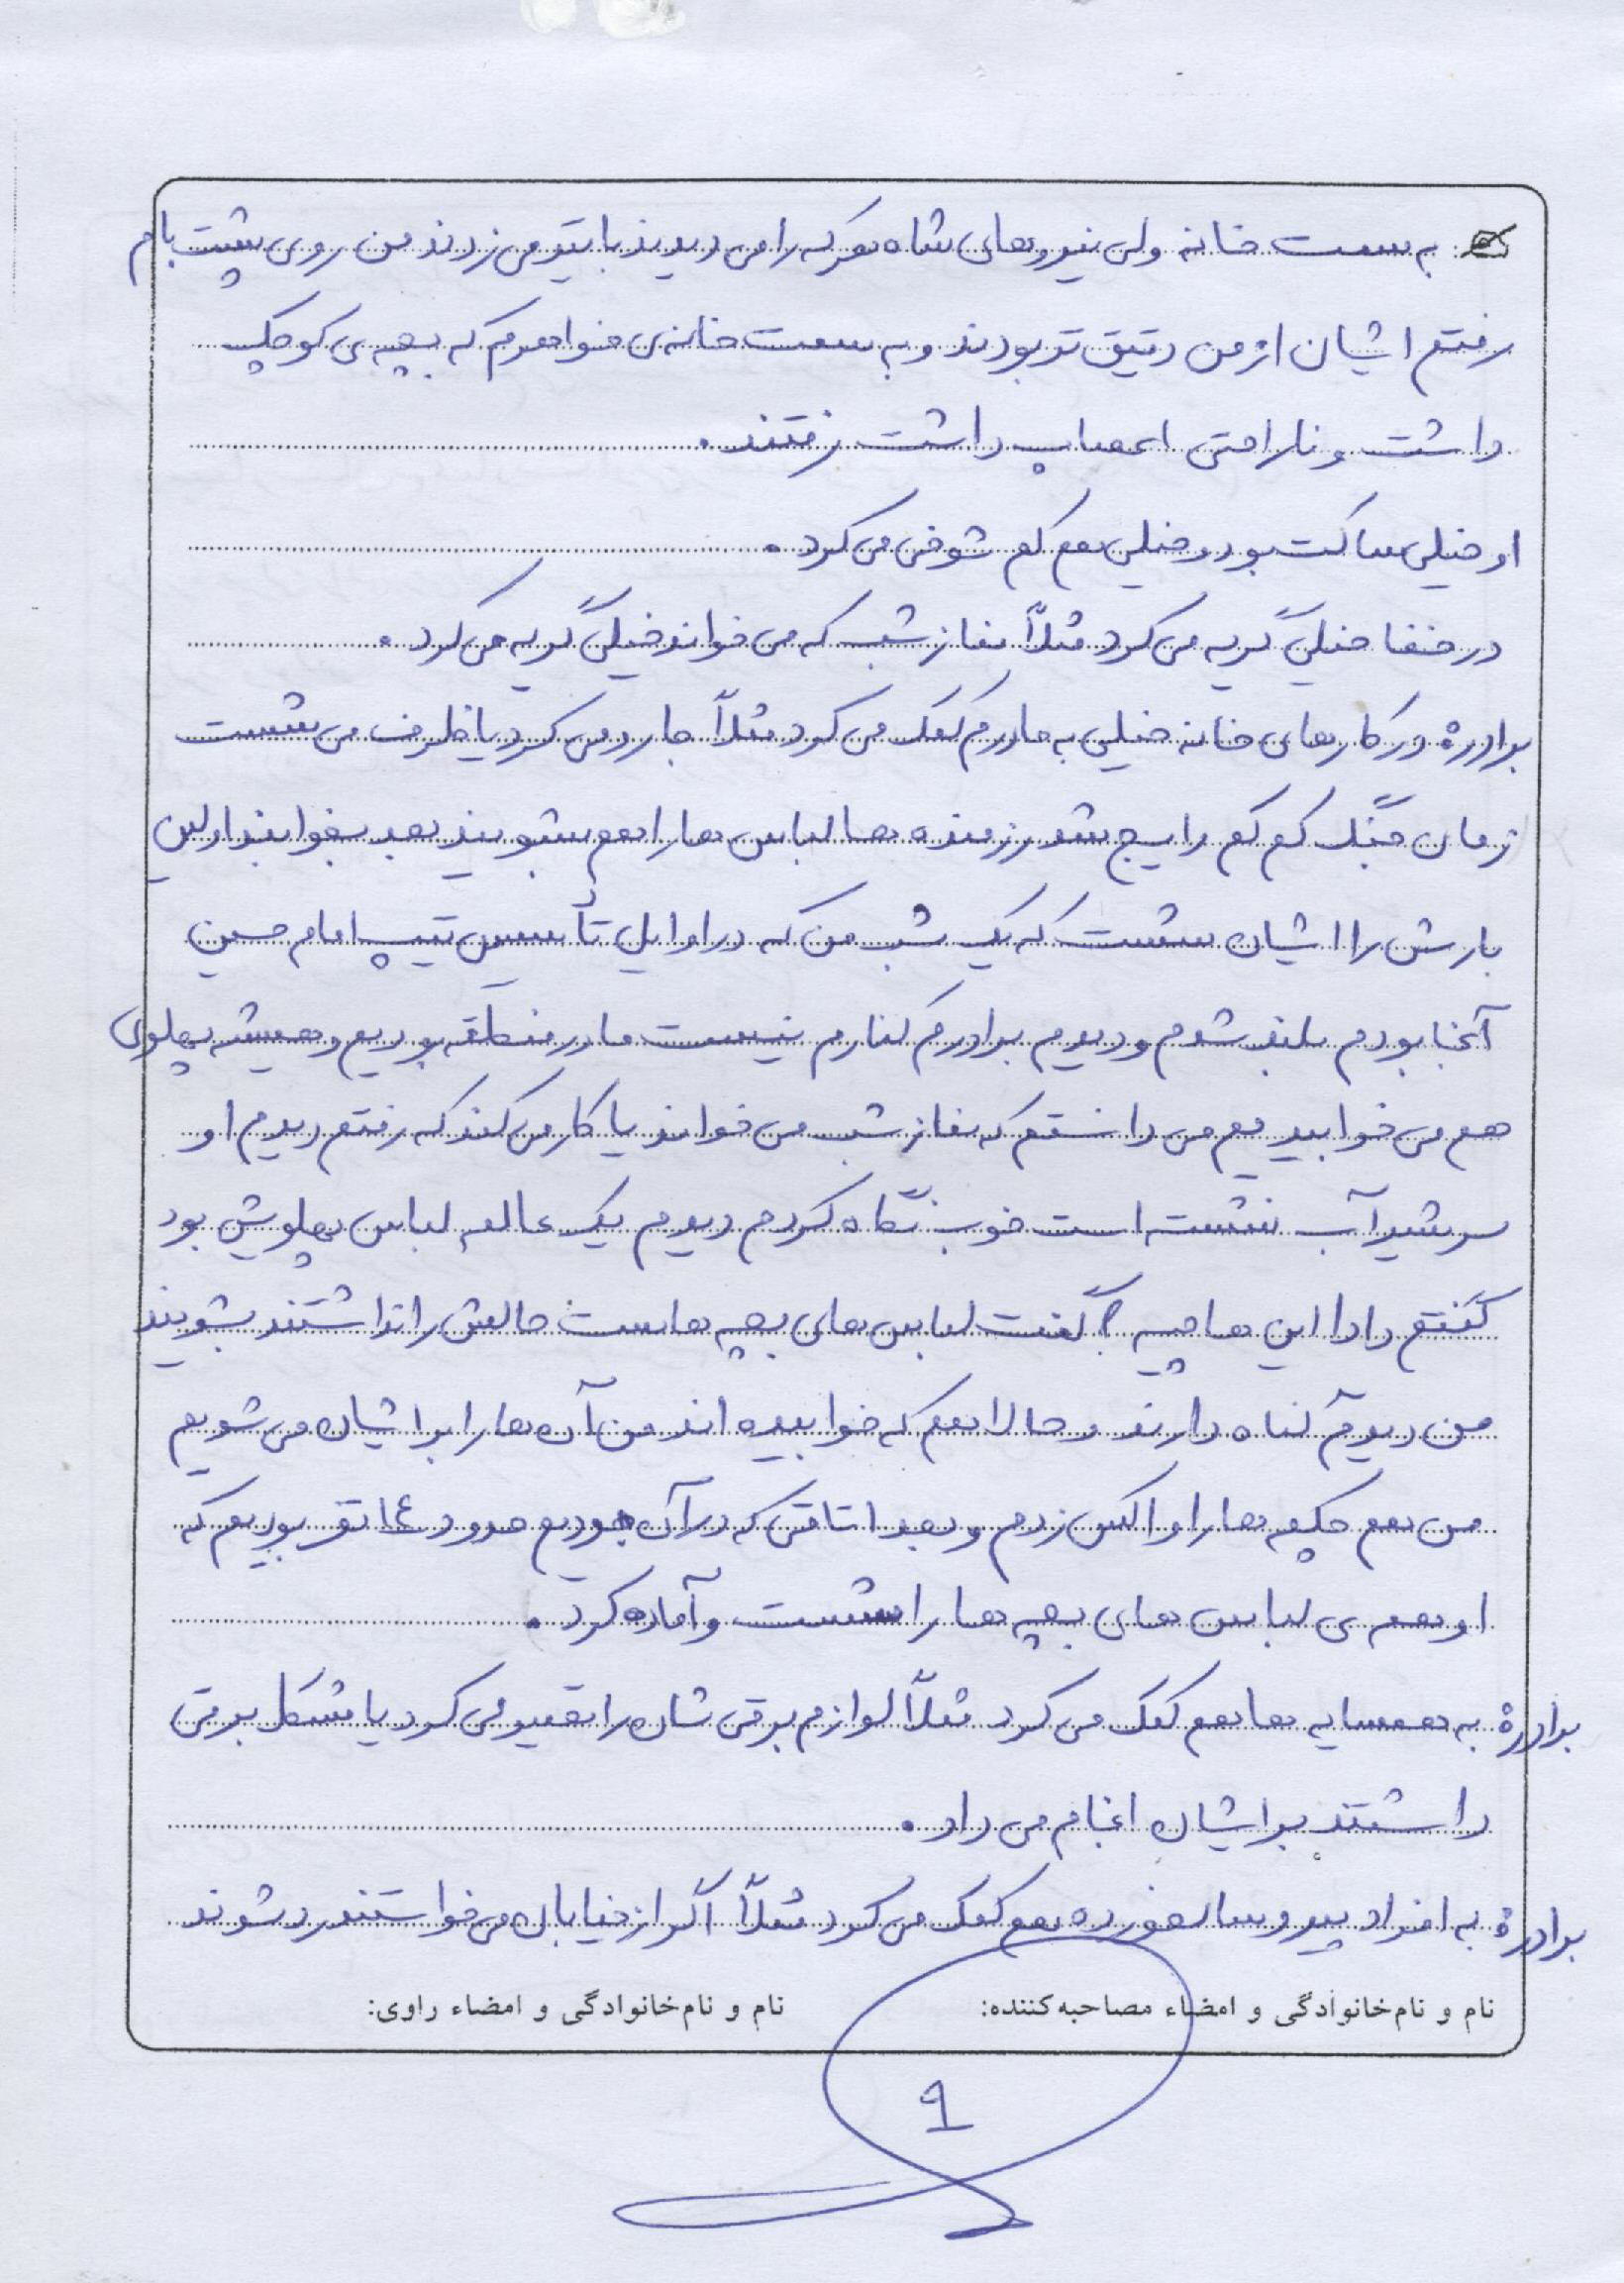 به سمت خانه ولی نیروهای شاه هر که را می دیدند با تیر می زدند من روی پشت بام
رفتم ایشان از من دقیق تر بودند و به سمت خانه ی خواهرم که بچه ی کوچک
داشت و ناراحتی اعصاب داشت رفتند.
او خیلی ساکت بود و خیلی هم کم شوخی می کرد.
در خفا خیلی گریه می کرد مثلاً نماز شب که می خواند خیلی گریه می کرد.
برادر؛ در کارهای خانه خیلی به مادرم کمک می کرد مثلاً جارو می کرد یا ظرف می شست
زمان جنگ کم کم رایج شد رزمنده ها لباس ها را هم بشویند بعد بخوابند اولین
بارش را ایشان شست که یک شب من که در اوایل تأسیس تیپ امام حسین
آنجا بودم بلند شدم و دیدم برادرم کنارم نیست ما در منطقه بودیم و همیشه پهلوی
هم می خوابیدیم می دانستم که نماز شب می خواند یا کار می کند که رفتم دیدم او
سر شیر آب نشسته است خوب نگاه کردم دیدم یک عالمه لباس پهلویش بود
گفتم دادا این ها چیه؟ گفت لباس های بچه هاست حالش را نداشتند بشویند
من دیدم گناه دارند و حالا هم که خوابیده اند من آن ها را برایشان می شویم
من هم چکمه ها را واکس زدم و بعد اتاقی که در آن بودیم حدود ۱۴ نفر بودیم که
او همه ی لباس های بچه ها را شست و آماده کرد.
برادر؛ به همسایه ها هم کمک می کرد مثلاً لوازم برقی شان را تعمیر می کرد یا مشکل برقی
داشتند برایشان انجام می داد.
برادر؛ به افراد پیر و سالخورده هم کمک می کرد مثلاً اگر از خیابان می خواستند رد شوند
نام و نام خانوادگی و امضاء مصاحبه کننده: نام و نام خانوادگی و امضاء راوی:
۹